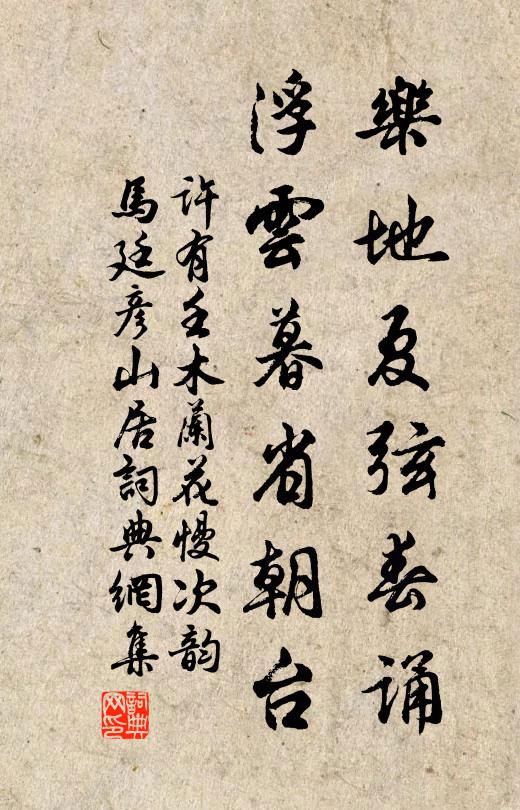 樂地夏弦春誦
浮雲暮省朝台
許有壬木蘭花慢次韵
馬廷彥山居詞典網集
詞典网印